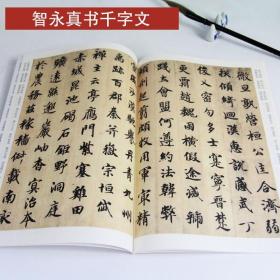 智永真书千字文
微旦孰營桓公匡合濟弱
扶傾綺迴漢惠說感武丁
俊乂密勿多士寔寧晉楚
更霸趙魏困橫假途滅虢
踐土會盟何遵約法韓弊
煩刑起翦頗牧用軍最精
宣威沙漠馳譽丹青九州
禹跡百郡秦并嶽宗恒岱
禪主云亭鴈門紫塞雞田
赤城昆池碣石鉅野洞庭
曠遠綿邈巖岫杳冥治本
於農務茲稼穡俶載南畝